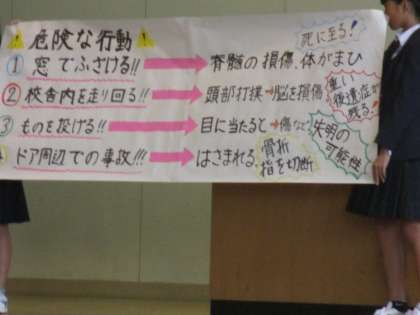 危険な行動 死に至る!
① 窓でふざける!! 脊髄の損傷、体がまひ
② 校舎内を走り回る!! 頭部打撲→脳を損傷 重い後遺症が残る!
③ ものを投げる!!! 目に当たると→傷など 失明の可能性
ドア周辺での事故!!! はさまれる、骨折 指を切断